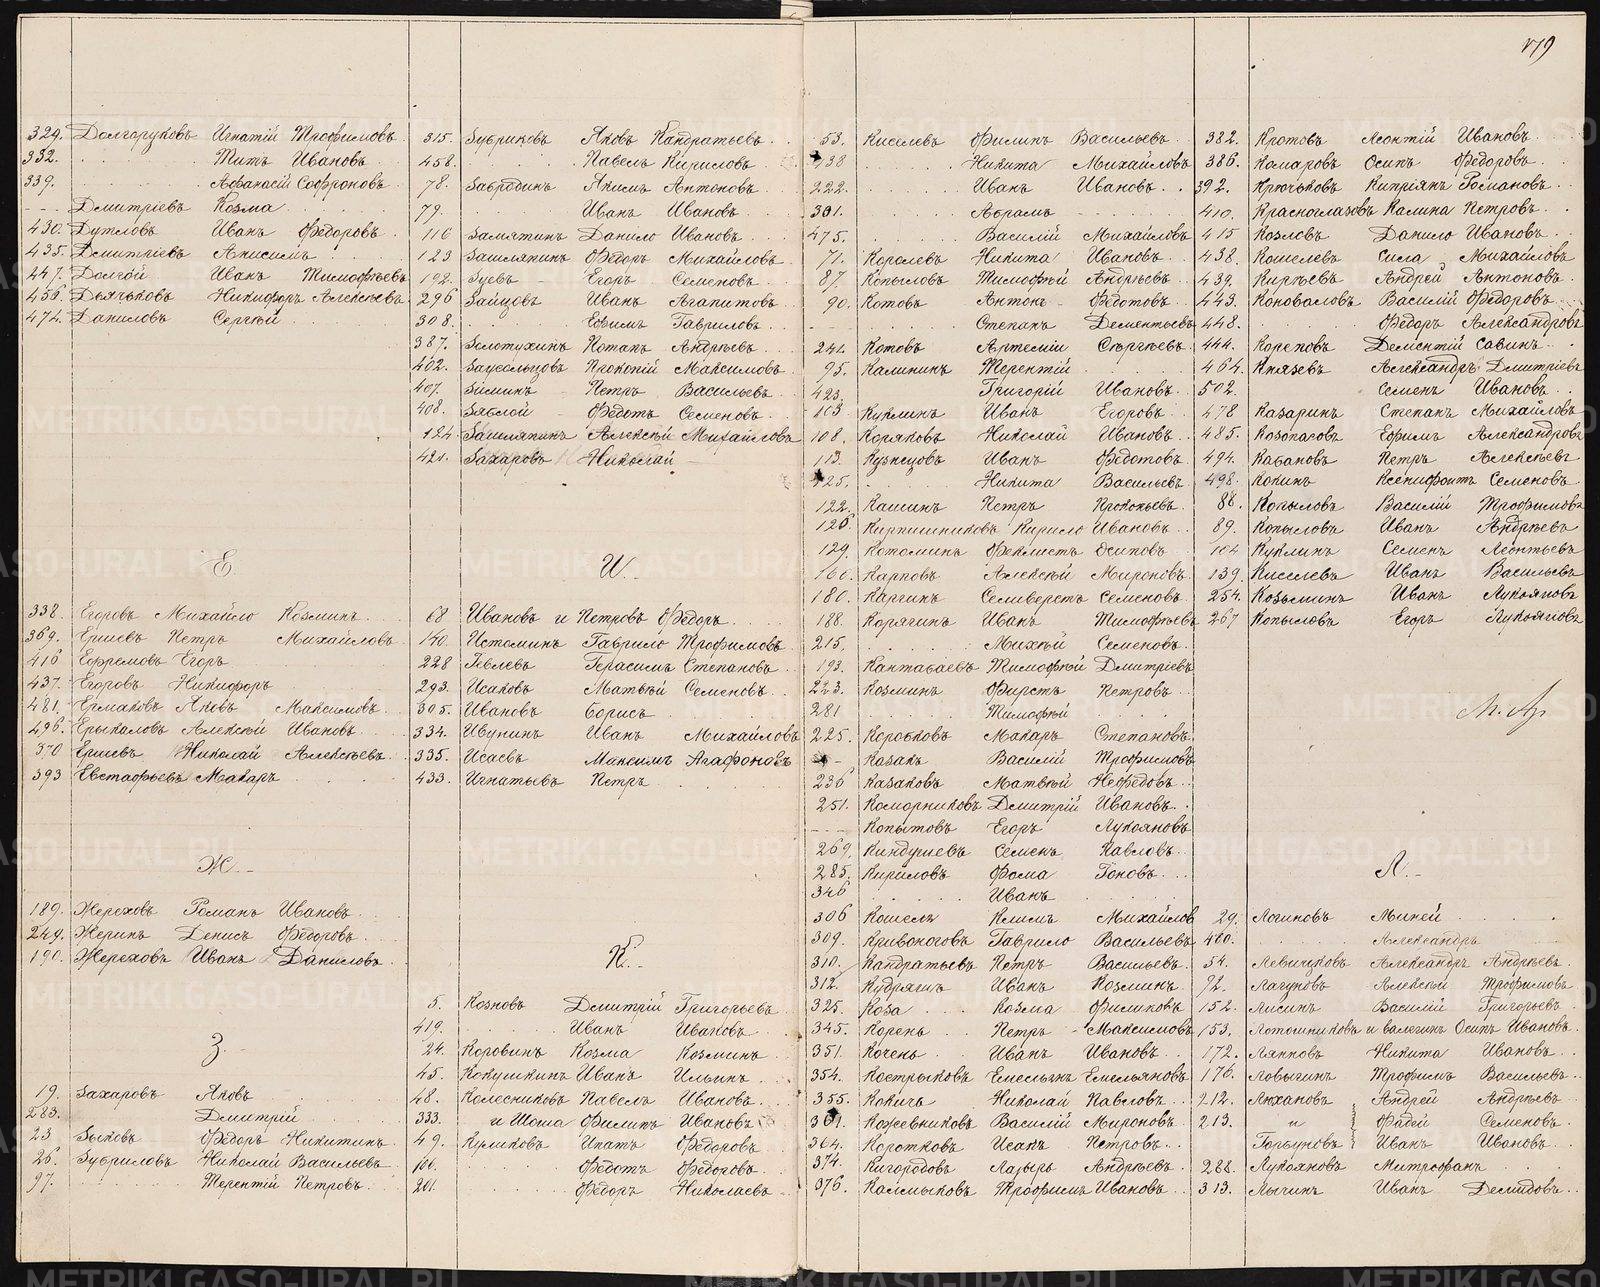 179
329. Долгоруковъ Игнатій Трофимовъ
332. Титъ Ивановъ
339. Афанасій Софроновъ
Дмитріевъ Козма
430. Дутловъ Иванъ Федоровъ
435. Дмитріевъ Анисимъ
447. Долгой Иванъ Тимофѣевъ
456. Дьячковъ Никифоръ Алексѣевъ
474. Даниловъ Сергѣй
Е.
338. Егоровъ Михайло Козминъ
369. Ершевъ Петръ Михайловъ
416 Ефремовъ Егоръ
437. Егоровъ Никифоръ
481. Ермаковъ Яковъ Максимовъ
496. Ерыкаловъ Алексѣй Ивановъ
370 Ершевъ Николай Алексѣевъ
393 Евстафьевъ Макаръ
Ж.
189. Жереховъ Романъ Ивановъ
249. Жеринъ Денисъ Федоровъ
190. Жереховъ Иванъ Даниловъ
З.
19. Захаровъ Яковъ
283. Дмитрій
23. Зыковъ Федоръ Никитинъ
26. Зубриловъ Николай Васильевъ
97. Терентій Петровъ
315. Зубриковъ Яковъ Кандратьевъ
458. Павелъ Кириловъ
78. Забродинъ Якимъ Антоновъ
79. Иванъ Ивановъ
116 Замятинъ Данило Ивановъ
123 Зашляпинъ Федоръ Михайловъ
192. Зуевъ Егоръ Семеновъ
296 Зайцовъ Иванъ Агапитовъ
308. Ефимъ Гавриловъ
387. Золотухинъ Потапъ Андрѣевъ
402. Прокопій Максимовъ
407. Зиминъ Петръ Васильевъ
408. Зяблой Федотъ Семеновъ
124 Зашляпинъ Алексѣй Михайловъ
421. Захаровъ Николай
И.
68 Ивановъ и Петровъ Федоръ
140. Истоминъ Гаврило Трофимовъ
228 Іевлевъ Герасимъ Степановъ
293. Исаковъ Матвѣй Семеновъ
305. Ивановъ Борисъ
334. Ивунинъ Иванъ Михайловъ
335. Исаевъ Максимъ Агафоновъ
433. Игнатьевъ Петръ
К.
5. Козновъ Дмитрій Григорьевъ
419. Иванъ Ивановъ
24. Коровинъ Козма Козминъ
45. Кокушкинъ Иванъ Ильинъ
48. Колесниковъ Павелъ Ивановъ
333. и Шоша Филипъ Ивановъ
49. Куликовъ Ипатъ Федоровъ
166. Федотъ Федоровъ
201. Федоръ Николаевъ
53. Киселевъ Филипъ Васильевъ
438 Никита Михайловъ
222. Иванъ Ивановъ
301. Абрамъ
475. Василій Михайловъ
71. Королевъ Никита Ивановъ
87. Копыловъ Тимофѣй Андрѣевъ
90. Котовъ Антонъ Федотовъ
Степанъ Дементьевъ
241. Котовъ Артемій Сергѣевъ
95. Калининъ Терентій
423. Григорій Ивановъ
103 Куклинъ Иванъ Егоровъ
108. Коряковъ Николай Ивановъ
113. Кузнецовъ Иванъ Федотовъ
425. Никита Васильевъ
122. Кашинъ Петръ Прокопьевъ
126 Кирпишниковъ Кирило Ивановъ
129. Котоминъ Феклистъ Осиповъ
160. Карповъ Алексѣй Мироновъ
180. Каргинъ Селиверстъ Семеновъ
188. Корягинъ Иванъ Тимофѣевъ
215. Михѣй Семеновъ
193. Кантабаевъ Тимофѣй Дмитріевъ
223. Козминъ Фирстъ Петровъ
281 Тимофѣй
225. Коробковъ Макаръ Степановъ
Козакъ Василій Трофимовъ
236 Казаковъ Матвѣй Нефедовъ
251. Коморниковъ Дмитрій Ивановъ
Копытовъ Егоръ Лукояновъ
269. Киндушевъ Семенъ Павловъ
285. Кириловъ Фома Іоновъ
346 Иванъ
306 Кошель Климъ Михайлов
309. Кривоноговъ Гаврило Васильевъ
310. Кандратьевъ Петръ Васильевъ
312. Кудрягинъ Иванъ Козминъ
325. Коза Козма Филиповъ
345. Корень Петръ Максимовъ
351. Кочень Иванъ Ивановъ
354. Костриковъ Емельянъ Емельяновъ
355. Кокичъ Николай Павловъ
361. Кожевниковъ Василій Мироновъ
364. Коротковъ Исакъ Петровъ
374. Кигородовъ Лазырь Андрѣевъ
376. Калмыковъ Трофимъ Ивановъ
382. Кротовъ Леонтій Ивановъ
386. Комаровъ Осипъ Федоровъ
392. Крючковъ Кипріянъ Романовъ
410. Красноглазовъ Калина Петровъ
415 Козлевъ Данило Ивановъ
438. Кошелевъ Сила Михайловъ
439. Кирѣевъ Андрей Антоновъ
443. Коноваловъ Василій Федоровъ
448. Федоръ Александровъ
444. Кореповъ Дементій Савинъ
464. Князевъ Александръ Дмитріевъ
502. Семенъ Ивановъ
478 Казаринъ Степанъ Михайловъ
485. Козопасовъ Ефимъ Александровъ
494. Кабановъ Петръ Алексѣевъ
498. Кокинъ Ксенифонтъ Семеновъ
88. Копыловъ Василій Трофимовъ
89. Копыловъ Иванъ Андрѣевъ
104 Куклинъ Семенъ Леонтьевъ
139. Киселевъ Иванъ Васильевъ
254. Козьминъ Иванъ Лукояновъ
267 Копыловъ Егоръ Лукояновъ
Л.
29. Логиновъ Миней
460. Александръ
54. Левицковъ Александръ Андрѣевъ
72. Лагуновъ Алексѣй Трофимовъ
152. Лисинъ Василій Григорьевъ
153. Лотошниковъ и Валегинъ Осипъ Ивановъ
172. Ляпповъ Никита Ивановъ
176. Ловыгинъ Трофимъ Васильевъ
212. Ляхановъ Андрей Андрѣевъ
213. и Фадей Семеновъ
Горбуновъ Иванъ Ивановъ
288. Лукояновъ Митрофанъ
313. Лычинъ Иванъ Демидовъ